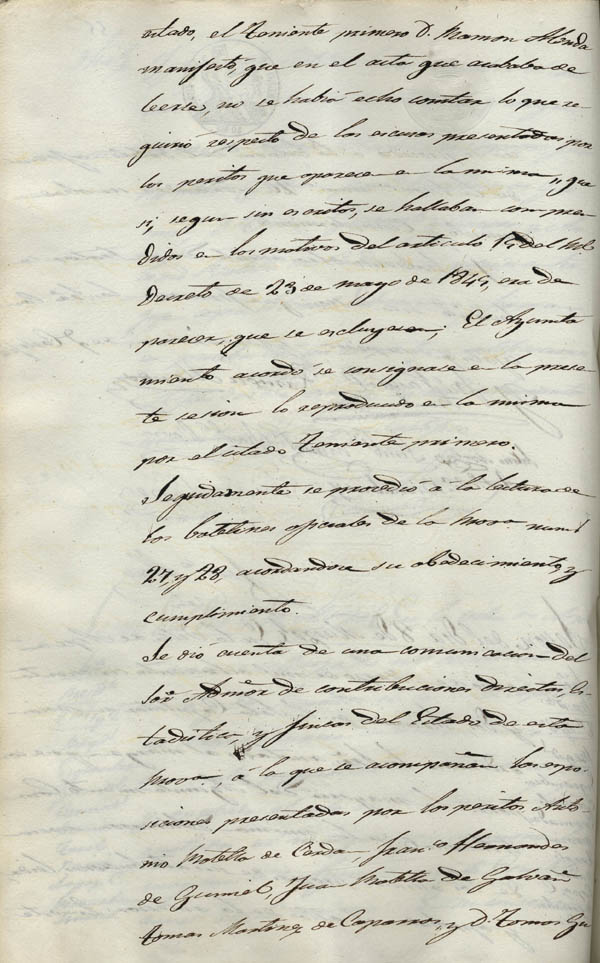 citado, el Teniente primero D. Ramon Merda
manifestó, que en el acta que acababa de
leerse, no se habia echo constar lo que re
quirió respecto de las escusas presentadas por
los peritos que aparece en la misma, que
si, segun sus escritos, se hallaban compren
didos en los motivos del articulo 15 del Rl.
Decreto de 23 de mayo de 1845, era de
parecer, que se escluyesen; El Ayunta
miento acordó se consignase en la prese
te sesion lo reproducido en la misma
por el citado Teniente primero.
Seguidamente se procedió á la lectura de
los boletines oficiales de la Prova. num.
27, y 28, acordandose su obedecimiento y
cumplimiento.
Se dió cuenta de una comunicacion del
Sor. Admor. de contribuciones directas, Es
tadistica y fincas del Estado de esta
Prova., á la que se acompañan los espo
siciones presentadas por los peritos Anto
nio Motella de Cerda, Franco. Hernandes
de Gumiel, Juan Motella de Galvañ
Tomas Martinez de Caparros, y D. Tomas Gu